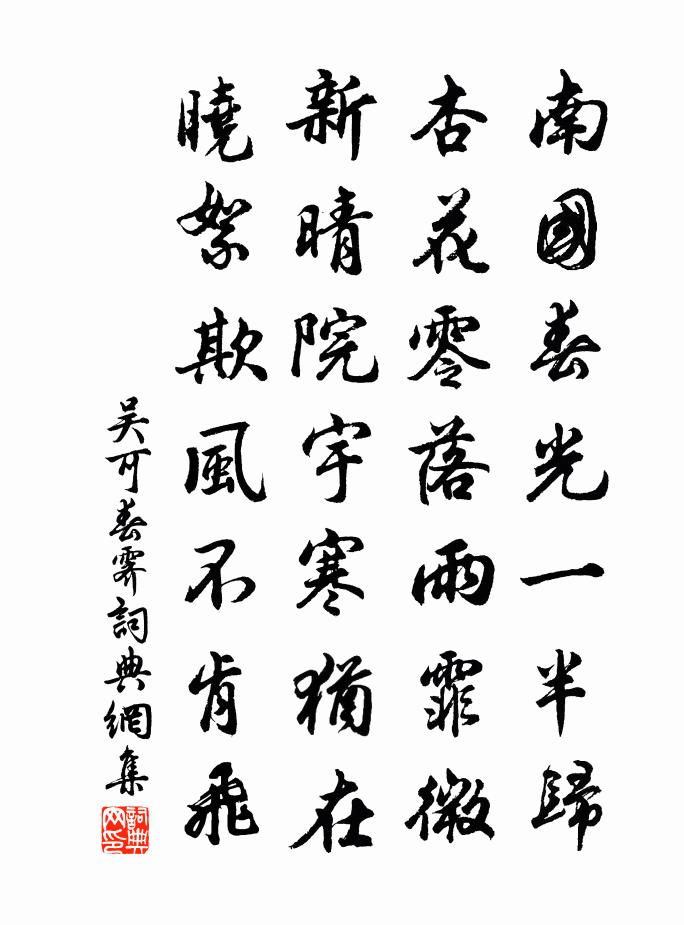 南國春光一半歸
杏花零落雨霏微
新晴院宇寒猶在
曉絮欺風不肯飛
吴可春霽詞典網集
詞典网印